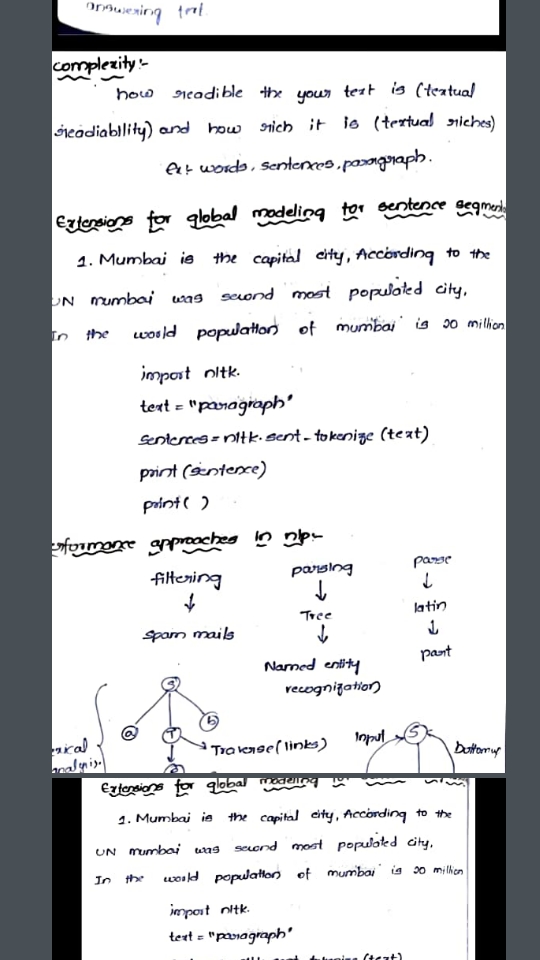 answering text
complexity:-
how readible the your text is (textual
readiability) and how rich it is (textual riches)
Ex:- words, sentences, paragraph.
Extensions for global modeling for sentence segment
1. Mumbai is the capital city, According to the
UN mumbai was second most populated city,
In the world population of mumbai is 20 million
import nltk.
text = "paragraph"
sentences = nltk.sent-tokenize (text)
print (sentence)
print( )
erformance approaches in nlp:-
filtering parsing parse
Tree latin
spam mails part
Named entity
recognization
S
a T b
Traverse (links)
a
xical
analysis.
Input S
bottomup
Extensions for global modeling
1. Mumbai is the capital city, According to the
UN mumbai was second most populated city,
In the world population of mumbai is 20 million
import nltk.
text = "paragraph"